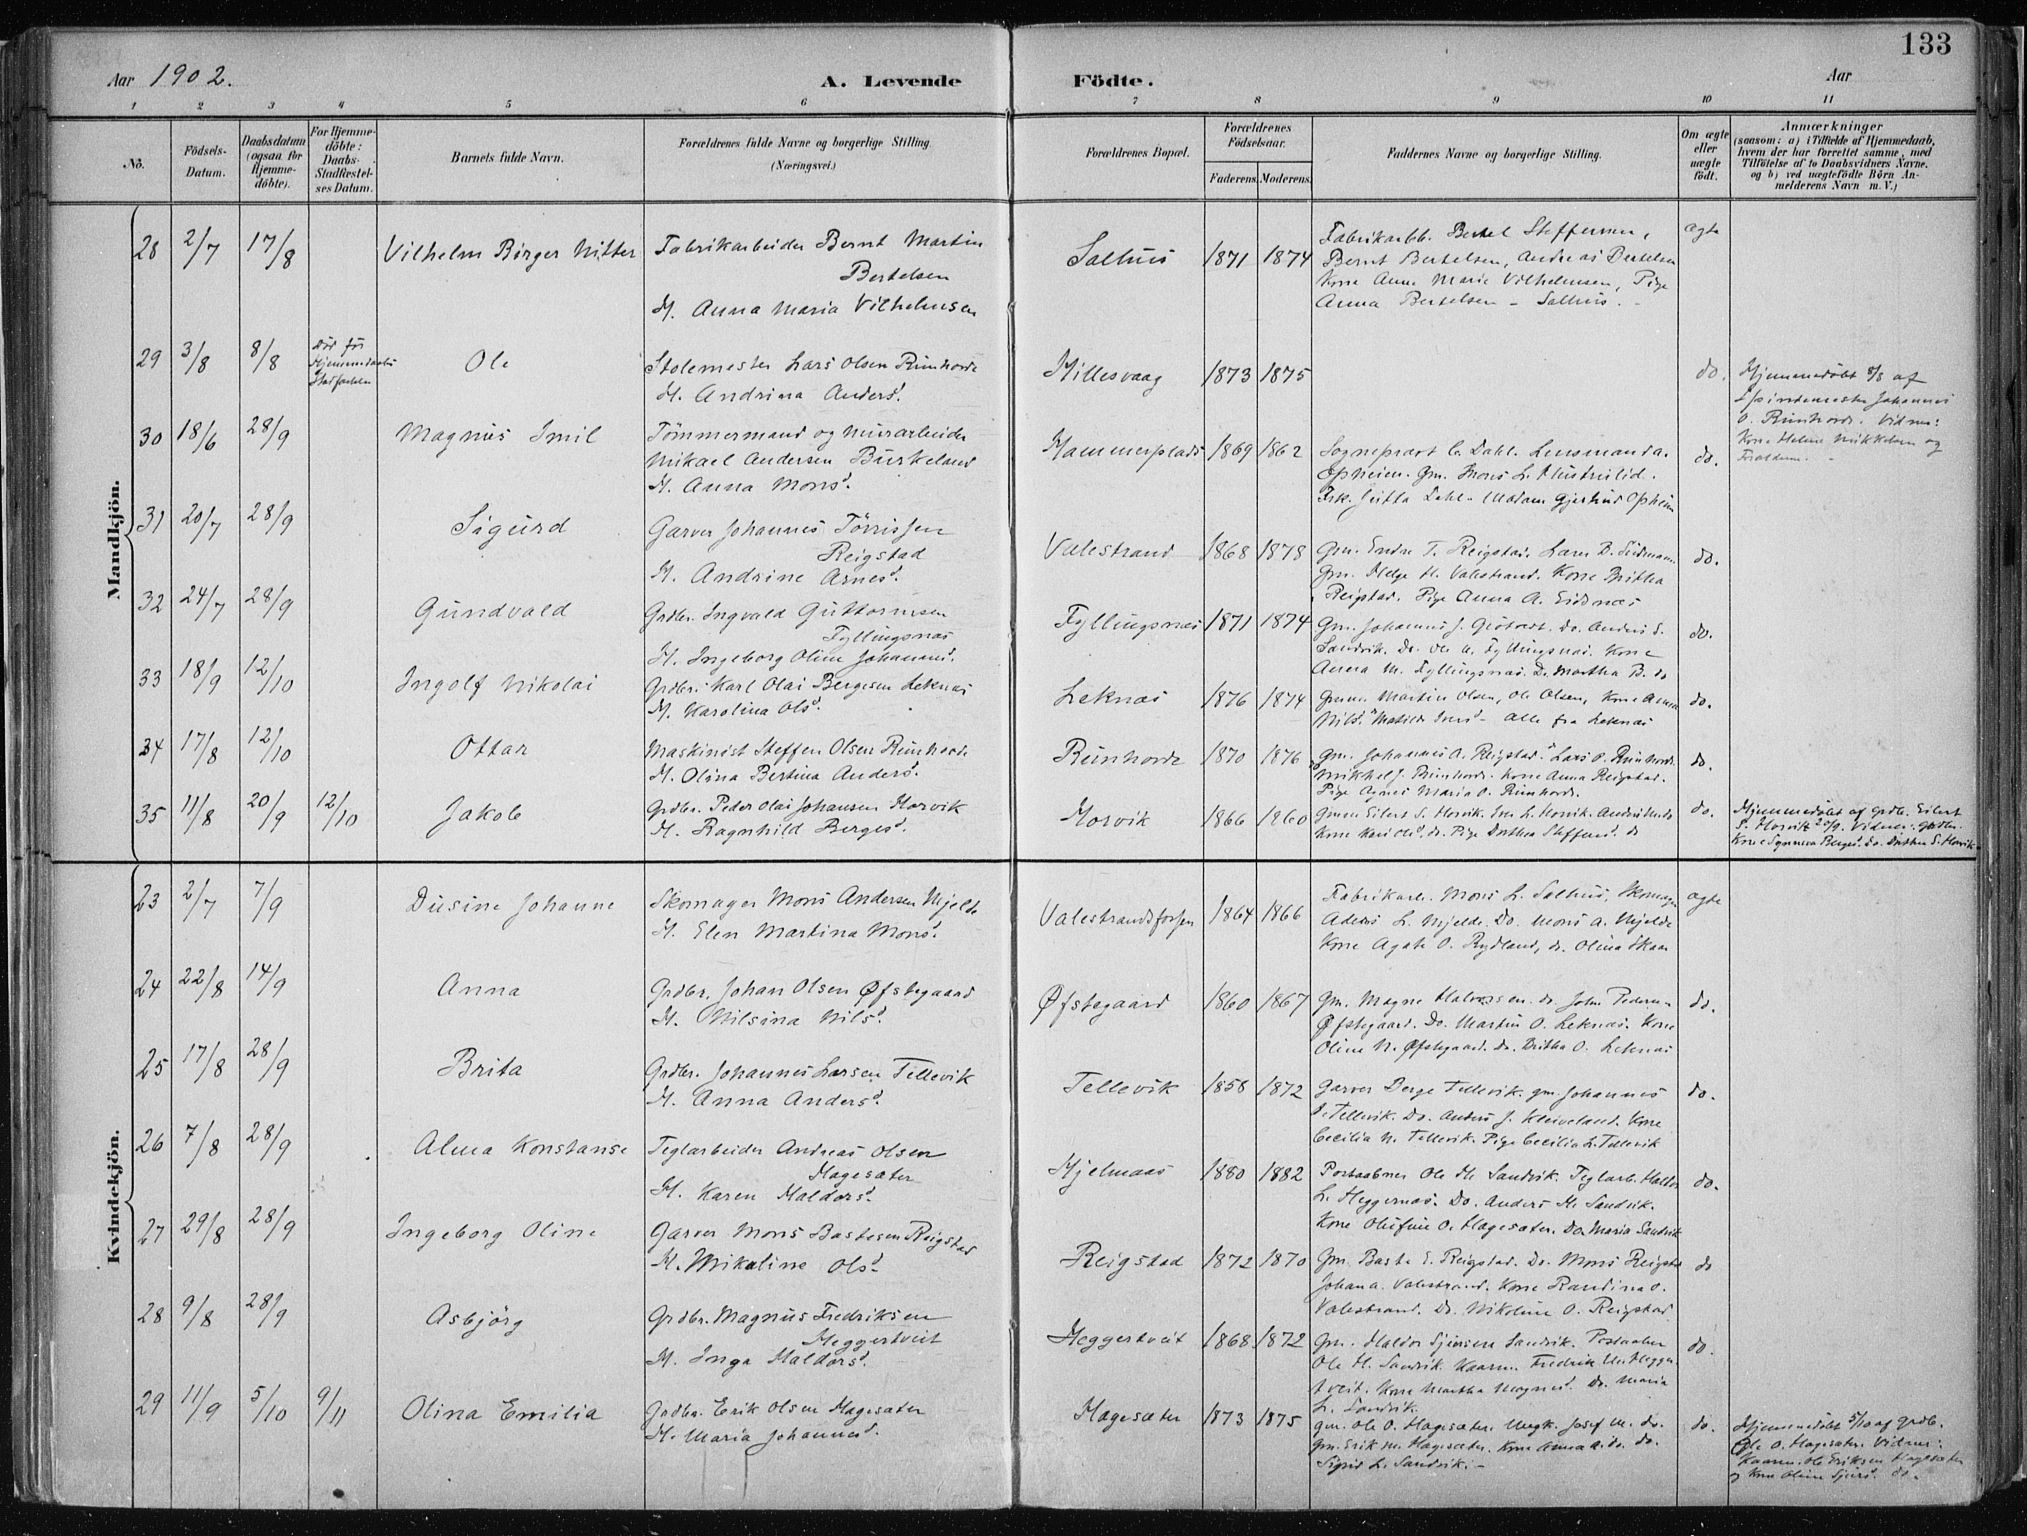 133
Aar 1902.
A. Levende
Födte.
Aar
1 2 3 4 5 6 7 8 9 10 11
No.
Födsels-Datum.
Daabsdatum (ogsaa for Hjemme-döbte).
For Hjemme-döbte: Daabs-Stadfæstel-ses Datum.
Barnets fulde Navn.
Forældrenes fulde Navne og borgerlige Stilling
(Næringsvei.)
Forældrenes Bopæl.
Forældrenes Födselsaar.
Faderens. Moderens.
Faddernes Navne og borgerlige Stilling.
Om ægte eller uægte födt.
Anmærkninger
(saasom: a) i Tilfælde af Hjemmedaab,
hvem der har forrettet samme, med
Tilföielse af to Daabsvidners Navne.
og b) ved uægtefödte Börn An-
melderens Navn m. V.)
Mandkjön.
28 2/7 17/8 Vilhelm Börger Nitter Fabrikarbeider Bernt Martin
Bertelsen
H. Anna Maria Vilhelmsen
Salhus 1871 1874
Bernt Bertelsen, Andreas Bertelsen
Kone Anne Marie Vilhelmsen, Pige
Anna Bertelsen - Salhus.
ægte
29 3/8 8/8 Död før Ole Stolemester Lars Olsen Rünhovde
H. Andrina Andersd.
Hillesvaag 1873 1875 do.
Hjemmedöbt 8/8 af
Johannes
O. Rünhovde. Vidner:
Kone Helene Mikkelsen og
Forældrene.
30 18/6 28/9 Magnus Emil Tömmermand og murarbeider
Mikael Andersen Burkeland
H. Anna Monsd.
Hammerplads 1869 1862 Sogneprest C. Dahl. Lensmand A.
Opheim. Gm. Mons L.
Frk. Jutta Dahl. Madam Gjertrud Opheim
do.
31 20/7 28/9 Sigurd Garver Johannes Törrissen
Reigstad
H. Andrine Arnesd.
Valestrand 1868 1878 Gm. Endre T. Reigstad.
Gm. Helge H. Valestrand. Kone Britha
Reigstad. Pige Anna A. Eidsnæs
do.
32 24/7 28/9 Gundvald Grdbr. Ingvald Guttormsen
Fyllingsnæs
H. Ingeborg Oline Johannesd.
Fyllingsnæs 1871 1874 Gm. Johannes J.
Sandvik. Do. Ole A. Fyllingsnæs. Kone
Anna M. Fyllingsnæs. Do. Martha B. do
do.
33 18/9 12/10 Ingolf Nikolai Grdbr. Karl Olai Bergesen Leknæs
H. Karolina Olsd.
Leknæs 1876 1874 Martin Olsen, Ole Olsen, Kone Anna
Nilsd. - Alle fra Leknæs
do.
34 17/8 12/10 Ottar Maskinist Steffen Olsen Rünhovde
H. Olina Bertina Andersd.
Rünhovde 1870 1876 Gm. Johannes A. Reigstad. Lars O. Rünhovde
Mikkel J. Rünhovde. Kone Anna Reigstad.
Pige Agnes Maria O. Rünhovde.
do.
35 11/8 20/9 12/10 Jakob Grdbr. Peder Olai Johansen Horvik
H. Ragnhild Bergesd.
Horvik 1866 1860 Eilert S. Horvik.
Kone Kari Olsd. do. Pige Dorthea Steffensd. do
do.
Hjemmedöbt af grdb. Eilert
S. Horvik 20/9. Vidner: grdbr.
Kone Synneva Bergesd. do. Dorthea S. Horvik
Kvindekjön.
23 2/7 7/9 Dusine Johanne Skomager Mons Andersen Mjelde
H. Elen Martina Monsd.
Valestrandsfossen 1864 1866 Fabrikarb. Mons L. Salhus, Skomager
L. Mjelde. Do. Mons A. Mjelde
Kone Agate O. Rydland, do. Olina Skaar
ægte
24 22/8 14/9 Anna Grdbr. Johan Olsen Øfstegaard
H. Nilsina Nilsd.
Øfstegaard 1860 1867 Gm. Magne Halvorsen. do. John Pedersen
Øfstegaard. Do. Martin O. Leknæs. Kone
Oline N. Øfstegaard. do. Britha O. Leknæs
do.
25 17/8 28/9 Brita Grdbr. Johannes Larsen Tellevik
H. Anna Andersd.
Tellevik 1858 1872 Garver Berge Tellevik. gm. Johannes
J. Tellevik. Do. Anders J. Kleiveland. Kone
Cecilia N. Tellevik. Pige Cecilia L. Tellevik
do.
26 7/8 28/9 Alma Konstanse Teglarbeider Andreas Olsen
Hagesæter
H. Karen Haldorsd.
Hjelmaas 1880 1882 Postaabner Ole H. Sandvik. Teglarb. Haldor
L. Heggernæs. Do. Anders H. Sandvik.
Kone Olufine O. Hagesæter. Do. Maria Sandvik
do.
27 29/8 28/9 Ingeborg Oline Garver Mons Bastesen Reigstad
H. Mikaline Olsd.
Reigstad 1872 1870 Gm. Baste E. Reigstad. Do. Mons Reigstad
Johan A. Valestrand. Kone Randina O.
Valestrand. Do. Nikoline O. Reigstad
do
28 9/8 28/9 Asbjörg Grdbr. Magnus Fredriksen
Heggertveit
H. Inga Haldorsd.
Heggertveit 1868 1872 Gm. Haldor Sjursen Sandvik. Postaabner
Ole H. Sandvik. Fredrik
tveit. Kone Martha Magnesd. Do. Maria
L. Sandvik.
do.
29 11/9 5/10 9/11 Olina Emilia Grdbr. Erik Olsen Hagesæter
H. Maria Johannesd.
Hagesæter 1873 1875 gm. Ole O. Hagesæter. Ungk. Josef M. do.
Gm. Erik M. Hagesæter. Kone Anna A. do. do.
Sigrid L. Sandvik. -
do.
Hjemmedöbt 5/10 af grdb.
Ole O. Hagesæter. Vidner:
Ole Eriksen Hagesæter
og Kone Oline Sjursd. do.